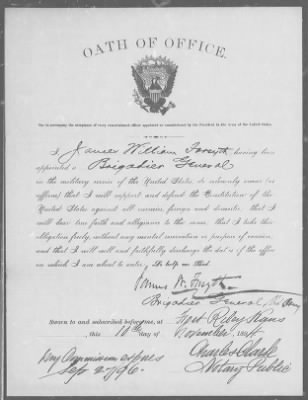 OATH OF OFFICE.
To accompany the acceptance of every commissioned officer appointed or commissioned by the President in the Army of the United States.
I James William Forsyth having been
appointed a Brigadier General
in the military service of the United States, do solemnly swear (or
affirm) that I will support and defend the Constitution of the
United States against all enemies, foreign and domestic; that I
will bear true faith and allegiance to the same; that I take this
obligation freely, without any mental reservation or purpose of evasion;
and that I will well and faithfully discharge the duties of the office
on which I am about to enter: So help me God.
James W. Forsyth
Brigadier General, U.S. Army
Sworn to and subscribed before me, at Fort Riley Kans
, this 10th day of November, 1894
Charles Clark
Notary Public
My Commission expires
Sep 27/96.